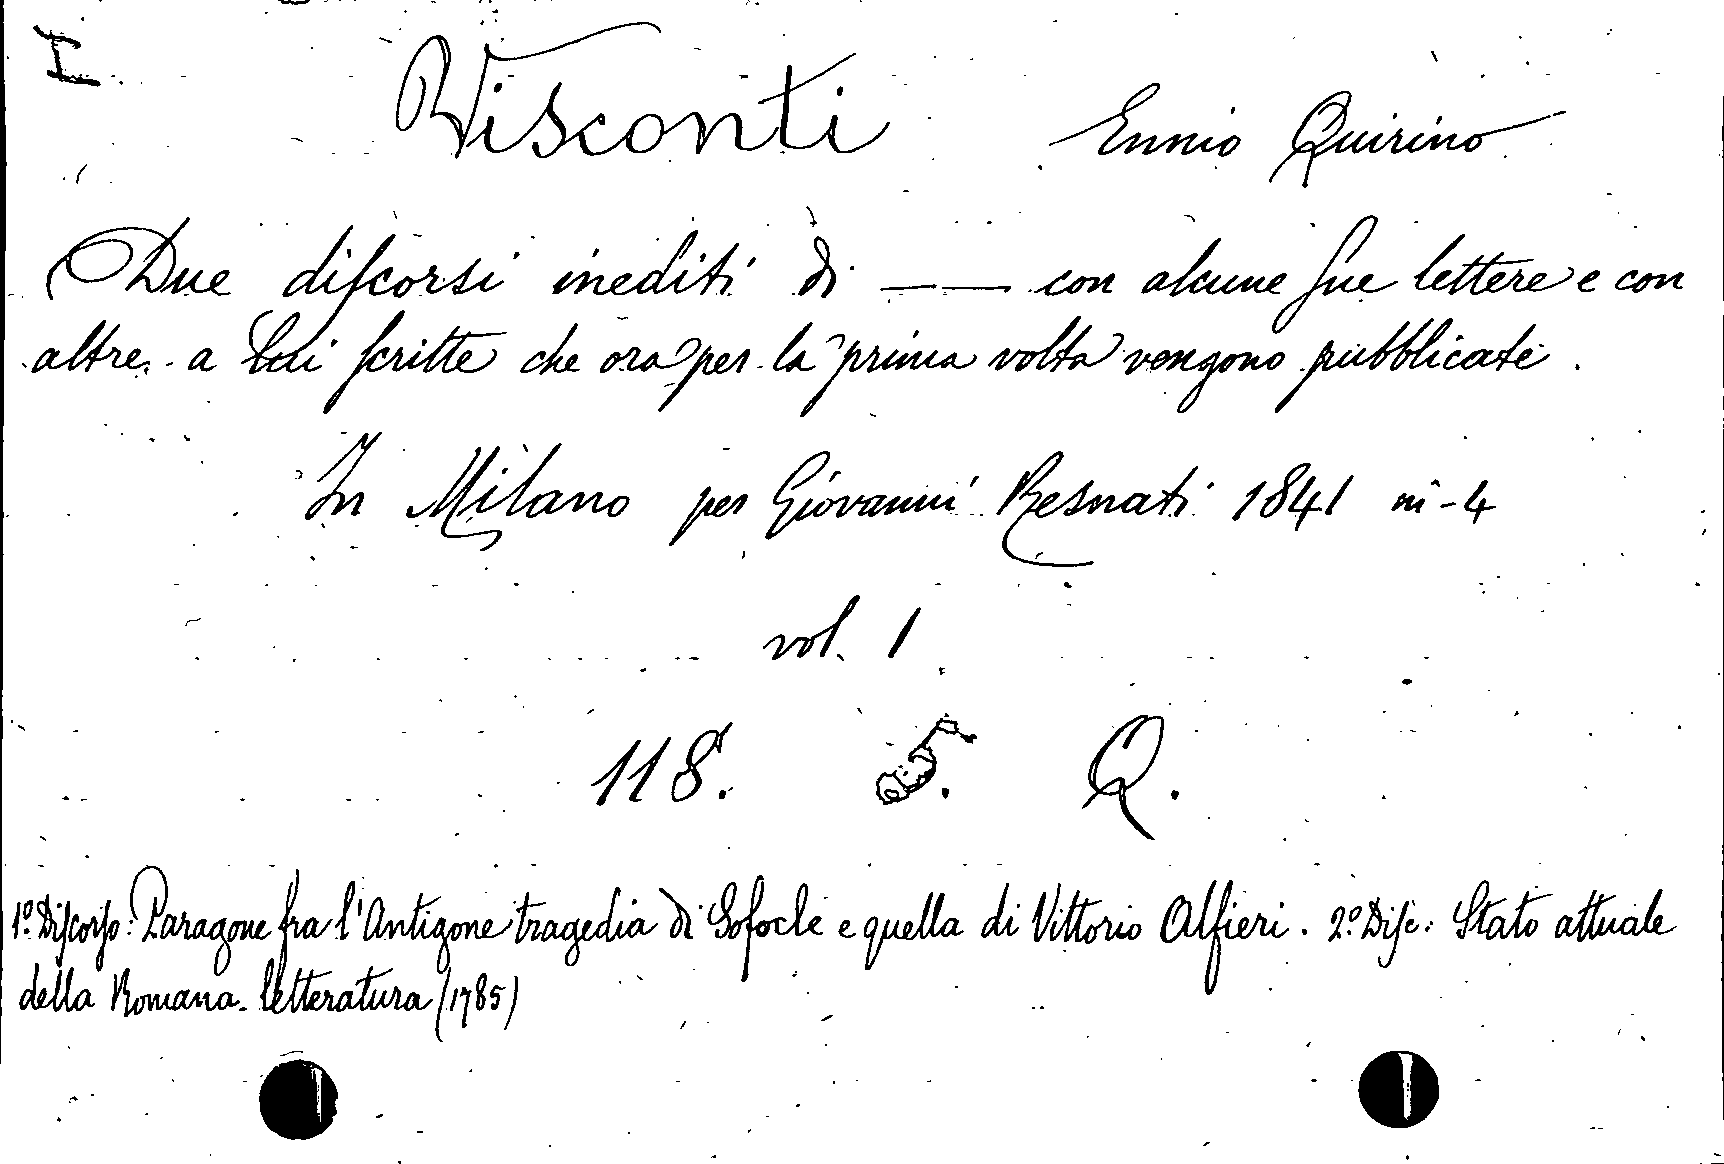 I
Visconti Ennio Quirino
Due diſcorsi inediti di —— con alcune ſue lettere e con
altre a lui ſcritte che ora per la prima volta vengono pubblicate.
In Milano per Giovanni Resnati 1841 in-4
vol. 1
118. 5. Q.
1º Diſcorſo: Paragone fra l'Antigone tragedia di Sofocle e quella di Vittorio Alfieri. 2º Diſc: Stato attuale
della Romana letteratura (1785)